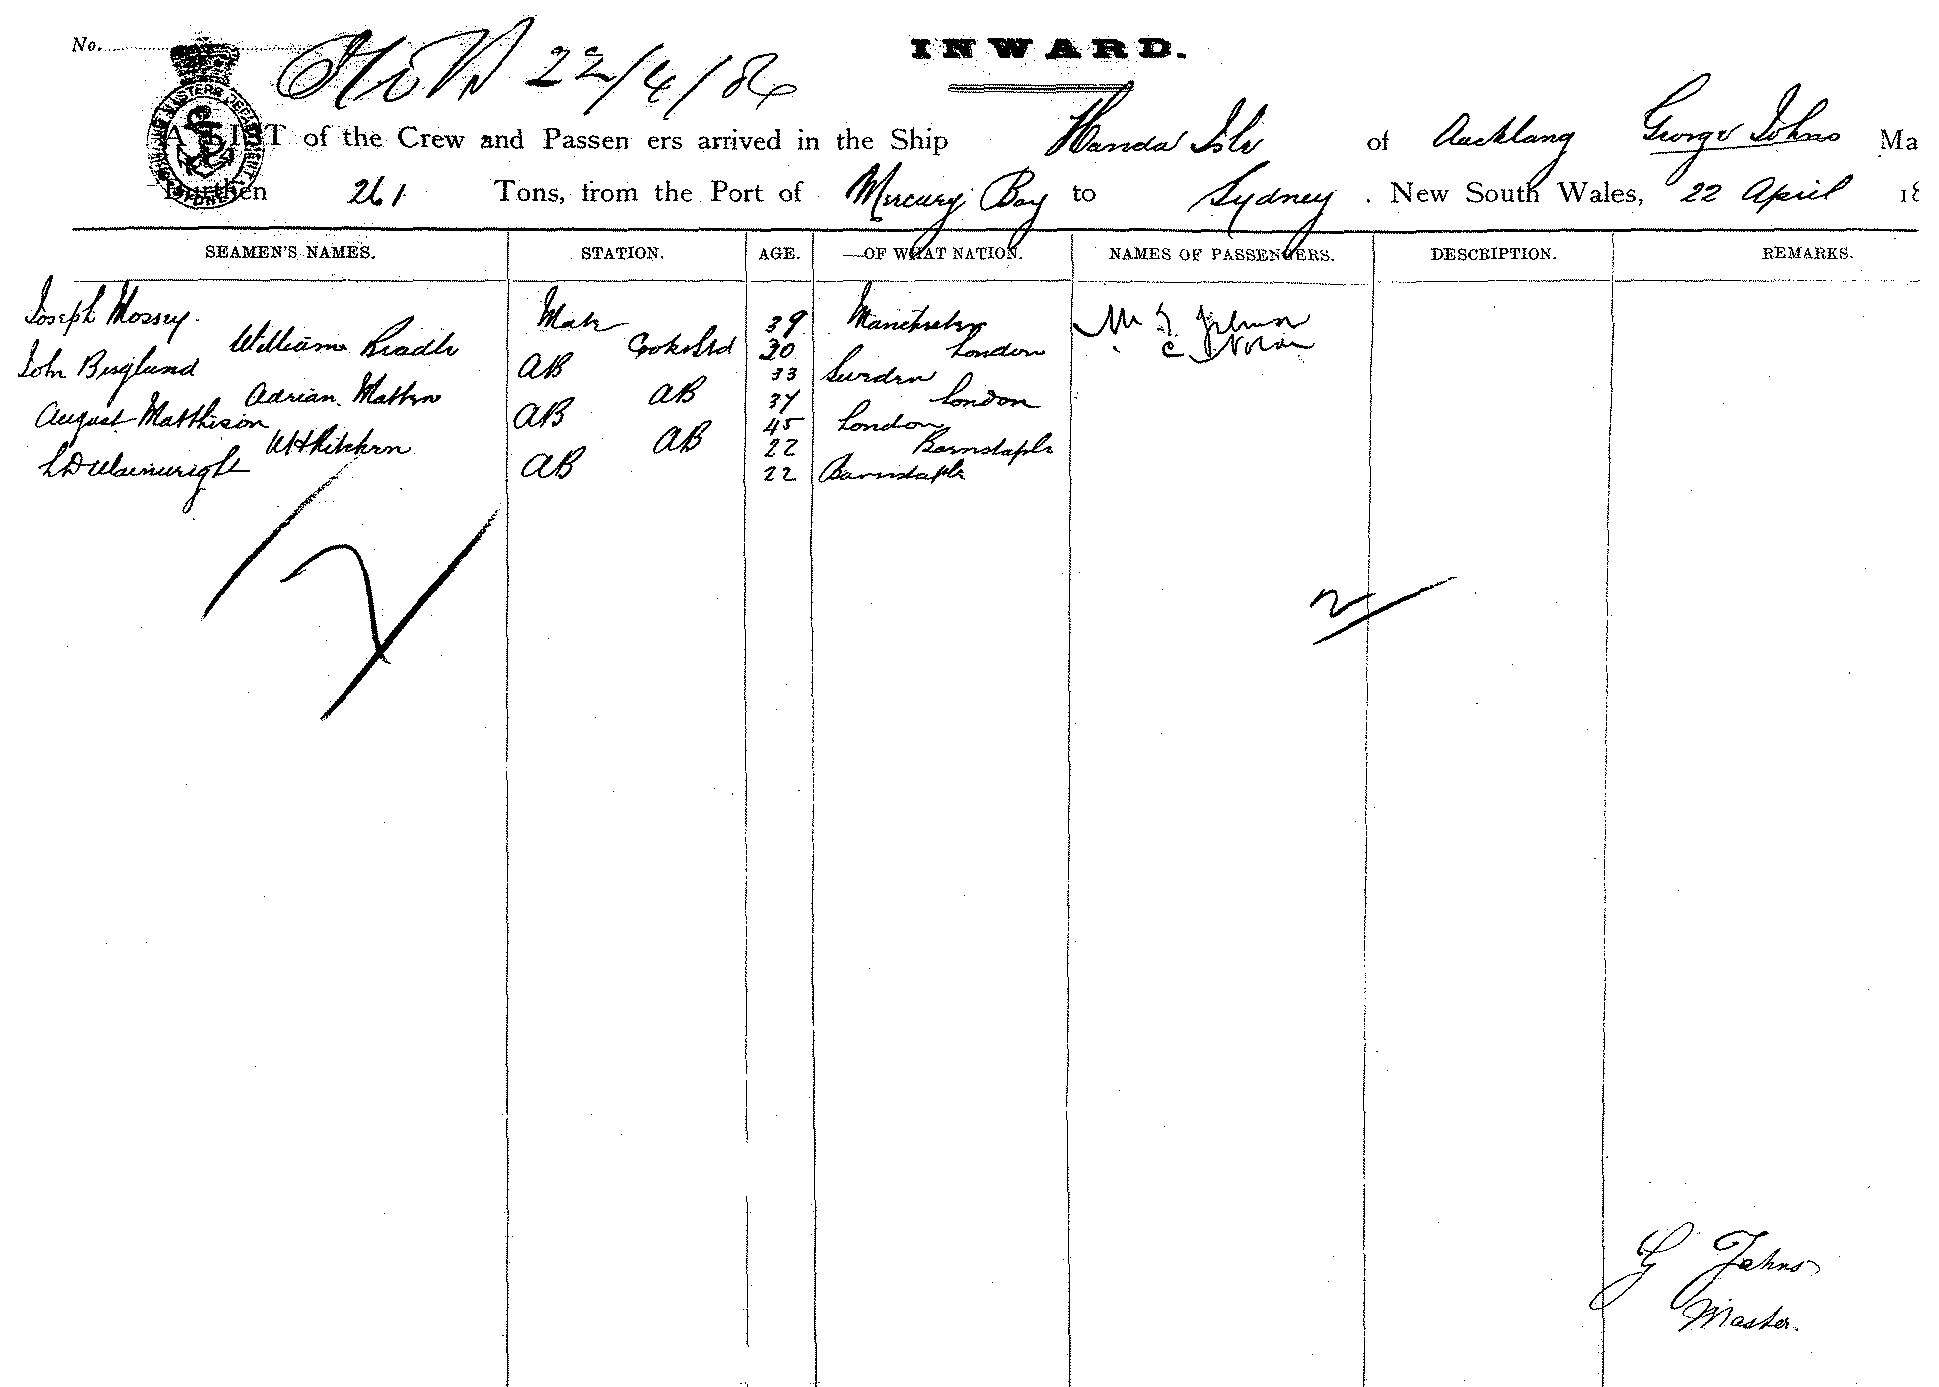 No.
22/4/86
INWARD.
A LIST of the Crew and Passen ers arrived in the Ship Handa Isle of Auckland George Johns Ma
Burthen 261 Tons, from the Port of Mercury Bay to Sydney . New South Wales, 22 April 18
SEAMEN'S NAMES. STATION. AGE. —OF WHAT NATION. NAMES OF PASSENGERS. DESCRIPTION. REMARKS.
Joseph Mossey. Mate 39 Manchester
William Beadle Cook & Std 30 London
John Berglund AB 33 Sweden
Adrian Matten AB 37 London
August Matthison AB 45 London
WH AB 22 Barnstaple
L D Wainwright AB 22 Barnstaple
7
2
G Johns
Master.